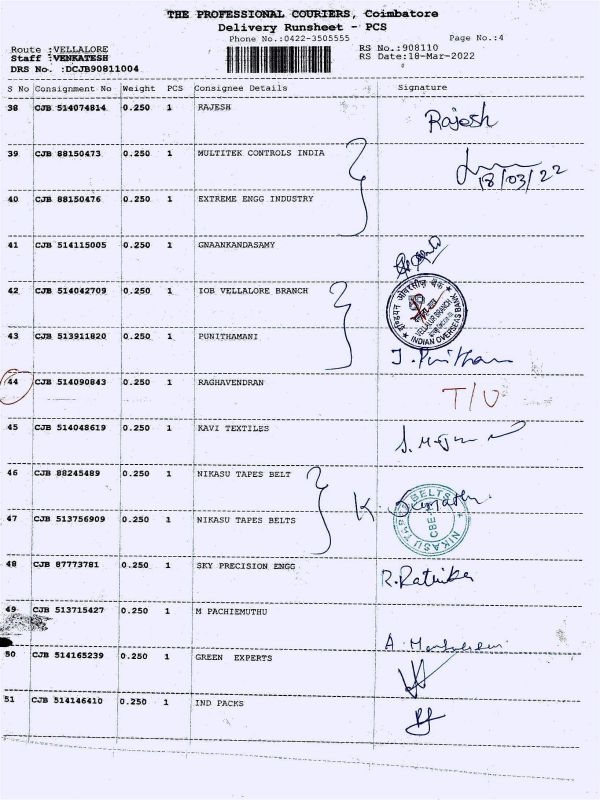 THE PROFESSIONAL COURIERS, Coimbatore
Delivery Runsheet - PCS
Phone No.:0422-3505555 Page No.:4
Route :VELLALORE RS No.:908110
Staff :VENKATESH RS Date:18-Mar-2022
DRS No. :DCJB90811004
S No Consignment No Weight PCS Consignee Details Signature
38 CJB 514074814 0.250 1 RAJESH Rajesh
39 CJB 88150473 0.250 1 MULTITEK CONTROLS INDIA
18/03/22
40 CJB 88150476 0.250 1 EXTREME ENGG INDUSTRY
41 CJB 514115005 0.250 1 GNAANKANDASAMY
42 CJB 514042709 0.250 1 IOB VELLALORE BRANCH
VELLALUR BRANCH
INDIAN OVERSEAS BANK
43 CJB 513911820 0.250 1 PUNITHAMANI
44 CJB 514090843 0.250 1 RAGHAVENDRAN T/U
45 CJB 514048619 0.250 1 KAVI TEXTILES
46 CJB 88245489 0.250 1 NIKASU TAPES BELT K
NIKASU TAPES BELTS
CBE
47 CJB 513756909 0.250 1 NIKASU TAPES BELTS
48 CJB 87773781 0.250 1 SKY PRECISION ENGG R.
49 CJB 513715427 0.250 1 M PACHIEMUTHU A.
50 CJB 514165239 0.250 1 GREEN EXPERTS
51 CJB 514146410 0.250 1 IND PACKS